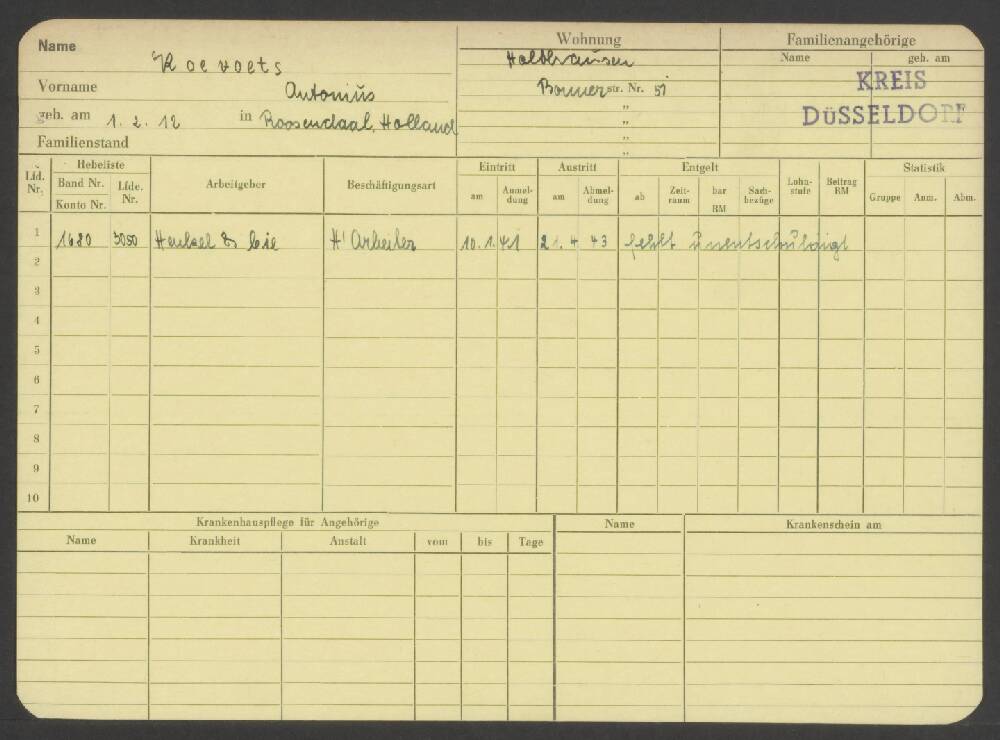 Name Koevoets
Vorname Antonius
geb. am 1. 2. 12 in Roosendaal, Holland
Familienstand
Wohnung
Holthausen
Bonner str. Nr. 51
"
"
"
"
Familienangehörige
Name geb. am
KREIS
DÜSSELDORF
Lfd. Nr. Hebeliste Arbeitgeber Beschäftigungsart Eintritt Austritt Entgelt Lohn-stufe Beitrag RM Statistik
Band Nr. Lfde. Nr. am Anmel-dung am Abmel-dung ab Zeit-raum bar RM Sach-bezüge Gruppe Anm. Abm.
Konto Nr.
1 1680 3050 Henkel & Cie H' Arbeiter 10. 1. 41 21. 4. 43 fehlt unentschuldigt
2
3
4
5
6
7
8
9
10
Krankenhauspflege für Angehörige
Name Krankheit Anstalt vom bis Tage
Name Krankenschein am